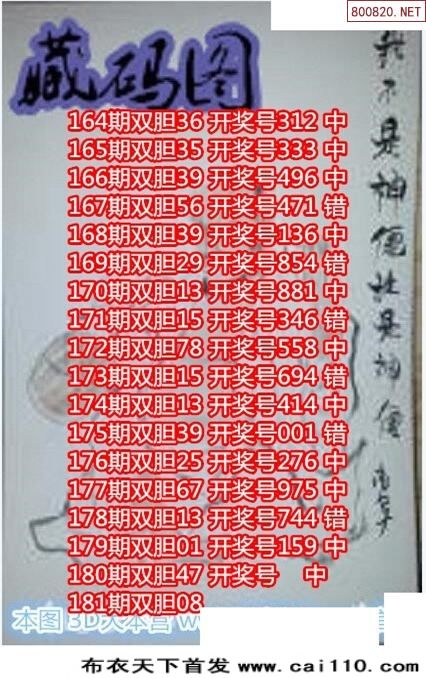 800820.NET
藏码图
164期双胆36 开奖号312 中
165期双胆35 开奖号333 中
166期双胆39 开奖号496 中
167期双胆56 开奖号471 错
168期双胆39 开奖号136 中
169期双胆29 开奖号854 错
170期双胆13 开奖号881 中
171期双胆15 开奖号346 错
172期双胆78 开奖号558 中
173期双胆15 开奖号694 错
174期双胆13 开奖号414 中
175期双胆39 开奖号001 错
176期双胆25 开奖号276 中
177期双胆67 开奖号975 中
178期双胆13 开奖号744 错
179期双胆01 开奖号159 中
180期双胆47 开奖号 中
181期双胆08
我不是神便社是神便
本图 3D大本营 w
布衣天下首发 www.cai110.com